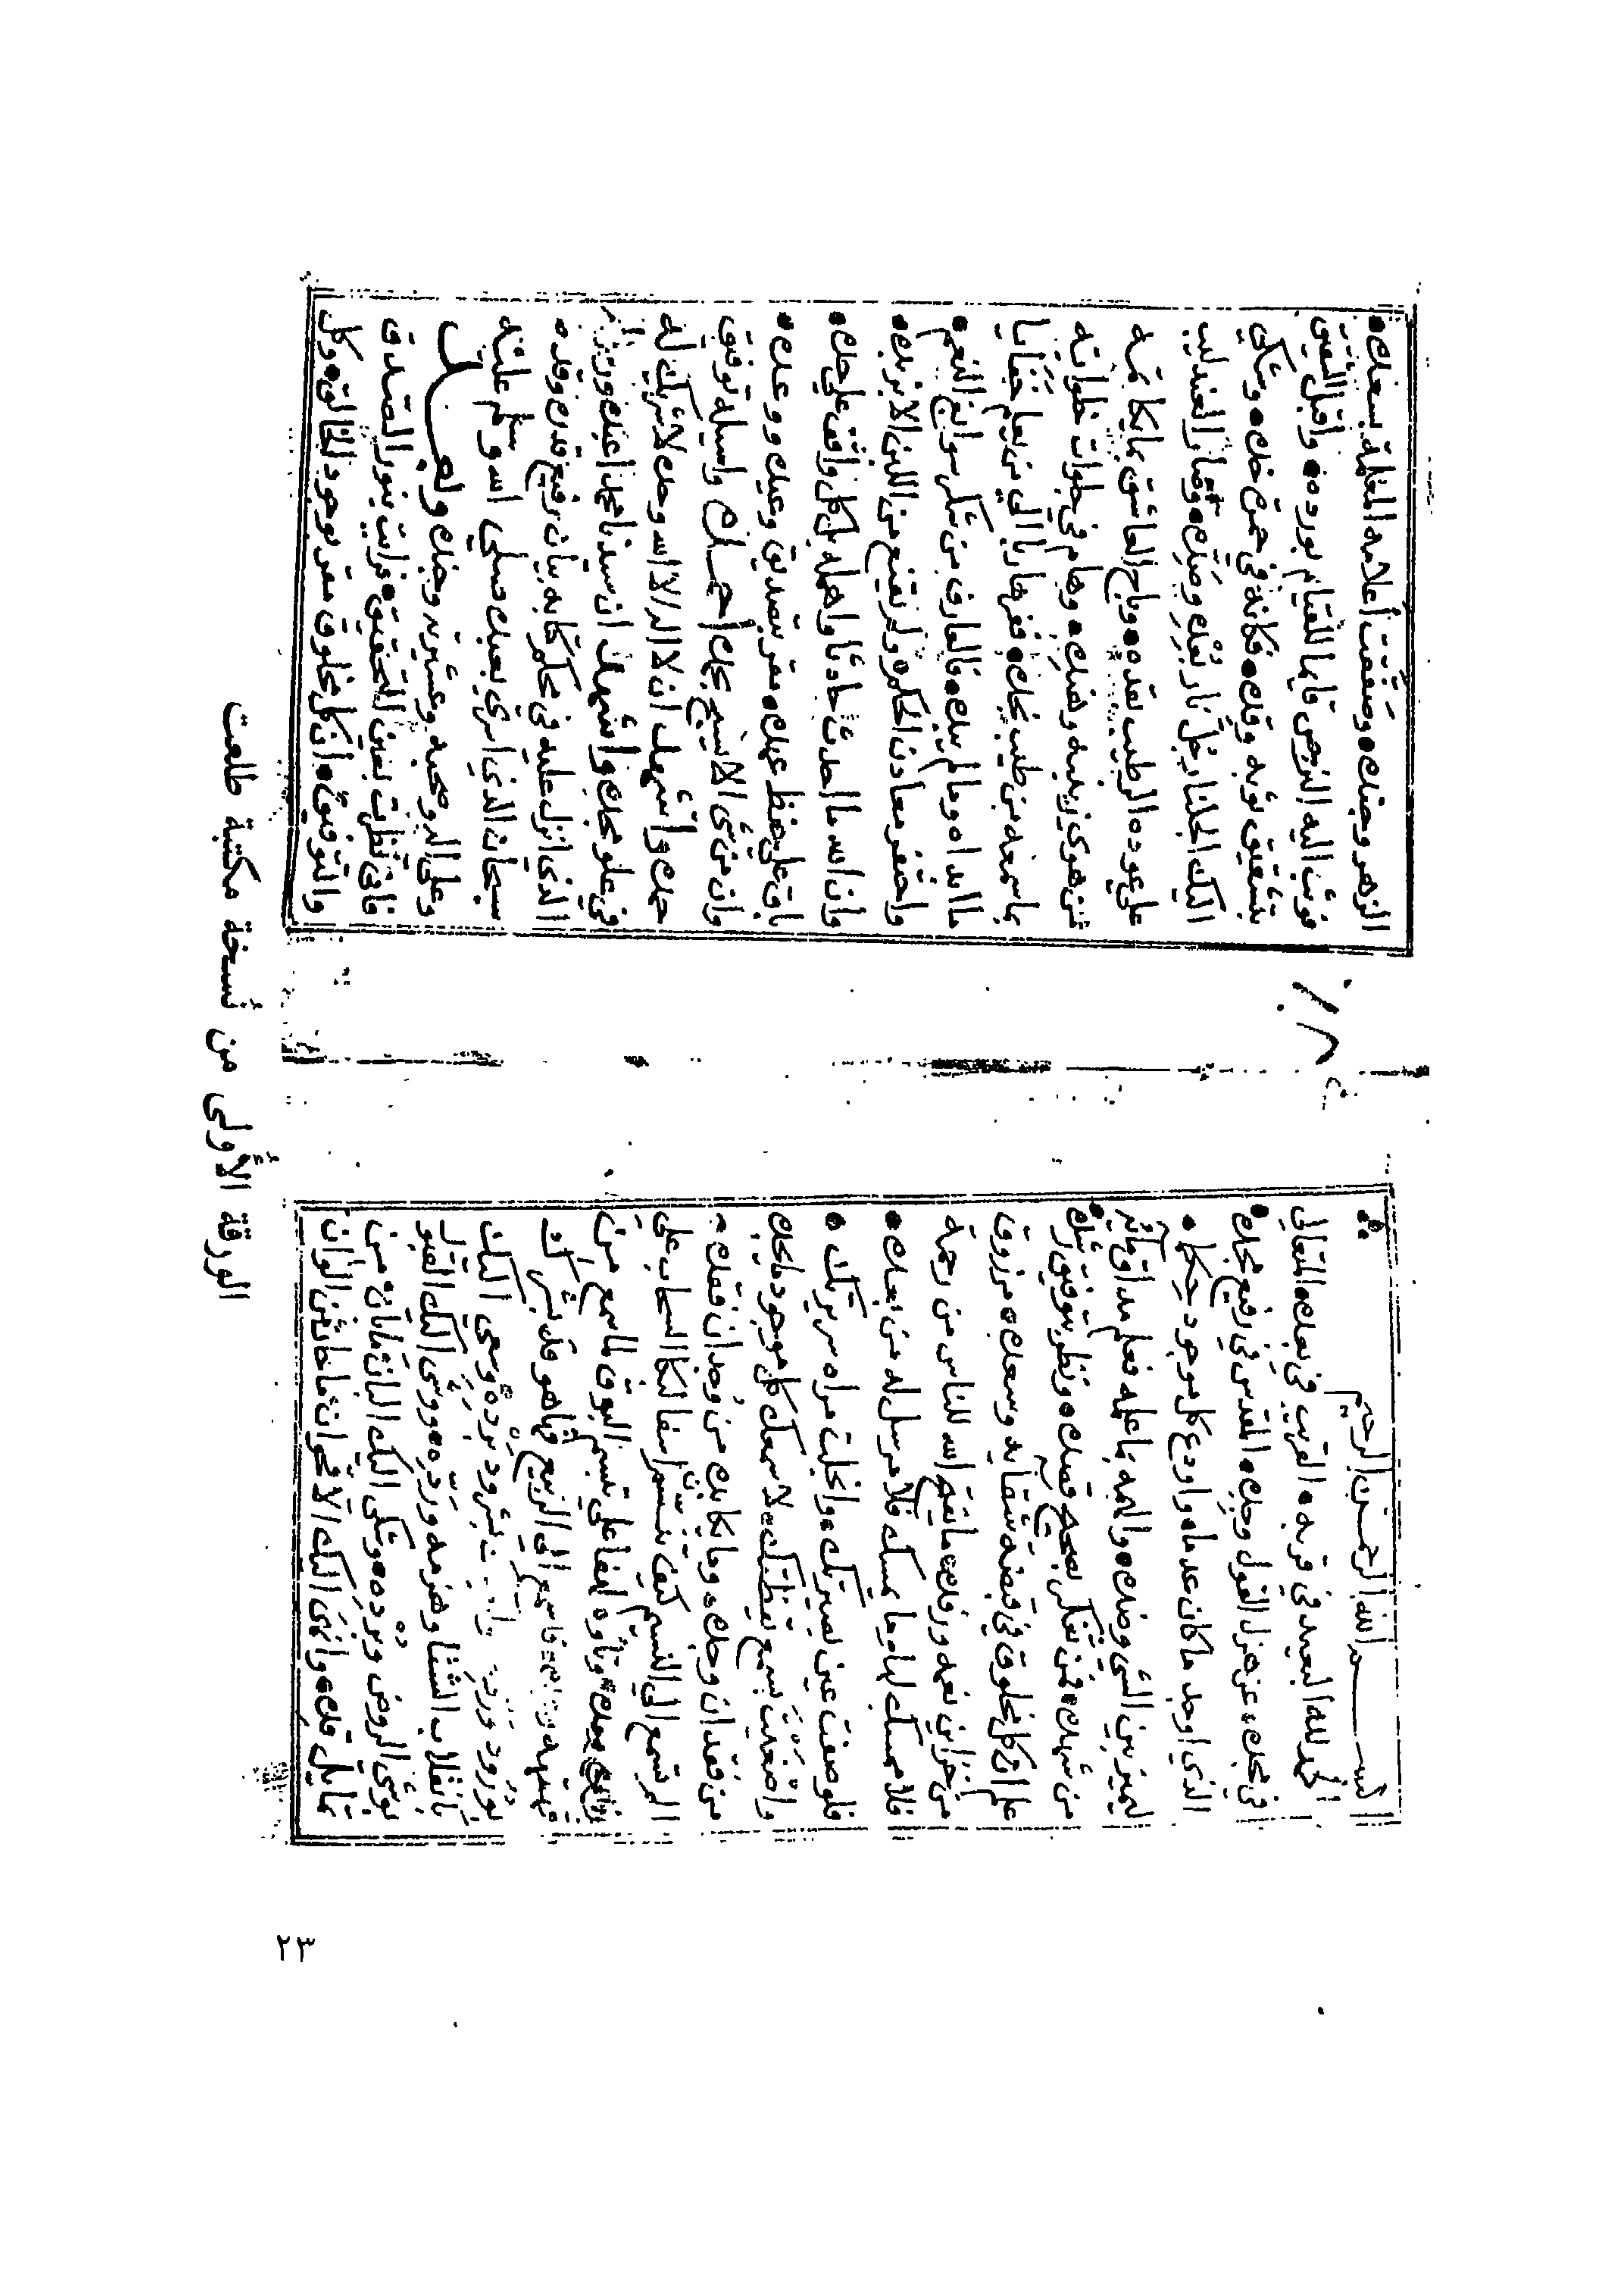 بسم الله الرحمن الرحيم
الحمد لله البعيد في قربه القريب في بعده المتعالي
في مجده عن هزل القول وجده المقدس في رفيع مجده
الذي اوجد ما كان عدما واودع كل موجود حكما
ليميز بين الشي وضده والهمه ما علمه فعلم مذاق
من شهده فمن تفكر بصحيح قصده ونظر بتوفيق رشده
علم ان كل مخلوق في قبضة شقايه وسعده مرزوق
من خزاين نعمه ورفده ما يفتح الله للناس من رحمة
فلا ممسك لها وما يمسك فلا مرسل له من بعده
فلو صفت عين بصيرتك وانجلت مراة سريرتك
واصغيت بسمع يقظتك لاسمعك كل موجود ما يجده
من فقدان وجده وما يكابده من وجدان فقده
الم تسمع الى النسيم كيف تنسم اسفا لبكا السحاب على
الى الربيع فما هو قد بشرك
بورود ورده برده وسعى اليك
بانقلاب الشتا وهزمه ورده ووشى اليك القبول
بوشي الروض وبرده وشكى اليك البان ما بان من
تمايل قده وانهى اليك الاقحوان ما طاش من الوان
الزهر وجنده وصففت اعلامه المظلة بسعده
فوثب اليه النرجس قايما للقيام بورده واقبل الشقيق
بتشقيق ثوبه وقده فكانه في حمرة خده وشكى
اليك الجلنار بجل نار بعده وصده وصار العندليب
على عوده الرطيب بقده وباح العاشق بما يكاتمه
من هوى زينبه وهنده وهام في خلوات خلواته
بما سمعه من طيب نجده ففر هاربا الى من يعلم خفايا
ما ابداه وما لم يبده فالعارف من شكر سوابغ النعم
واحتفر معادن الحكم ولم يقنع من اللبن الا بزبده
وان الله ما احدث حادثا واهله بل كل واقف على حده
باق على حفظ عهده مقر بتصديق وعيده ووعده
وان من شي الا يسبح بحمده احمده واسيله توفيق
حمده واشهد ان لا اله الا الله وحده لا شريك له
في علو مجده واشهد ان سيدنا محمدا عبده ورسوله
الذي انزل عليه في محكم كتابه بيان رفيع قدره وقده
سبحان الذي اسرى بعبده صلى الله وسلم عليه
وعلى اله وصحبه وعشيرته وجنده وبعد
فاني نظرت بعين التحقيق فرايت بنور التصديق
والتوفيق ان كل مخلوق مقر بوجود الخالق وكل
الورقة الأولى من نسخة مكتبة طلعت
٢٣